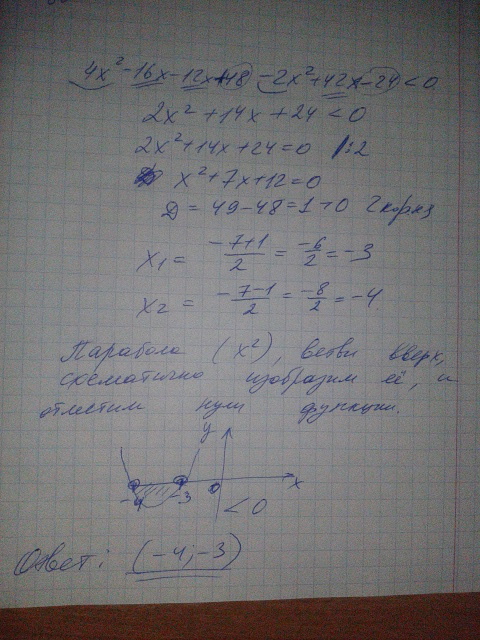 4x² - 16x - 12x + 48 - 2x² + 42x - 24 < 0
2x² + 14x + 24 < 0
2x² + 14x + 24 = 0 /:2
x² + 7x + 12 = 0
D = 49 - 48 = 1 > 0 2 корня
x₁ = (-7+1)/2 = -6/2 = -3
x₂ = (-7-1)/2 = -8/2 = -4
Парабола (x²), ветви вверх,
схематично изобразим её, и
отметим нули функции.
y
-4 -3 0 x
< 0
Ответ: (-4; -3)